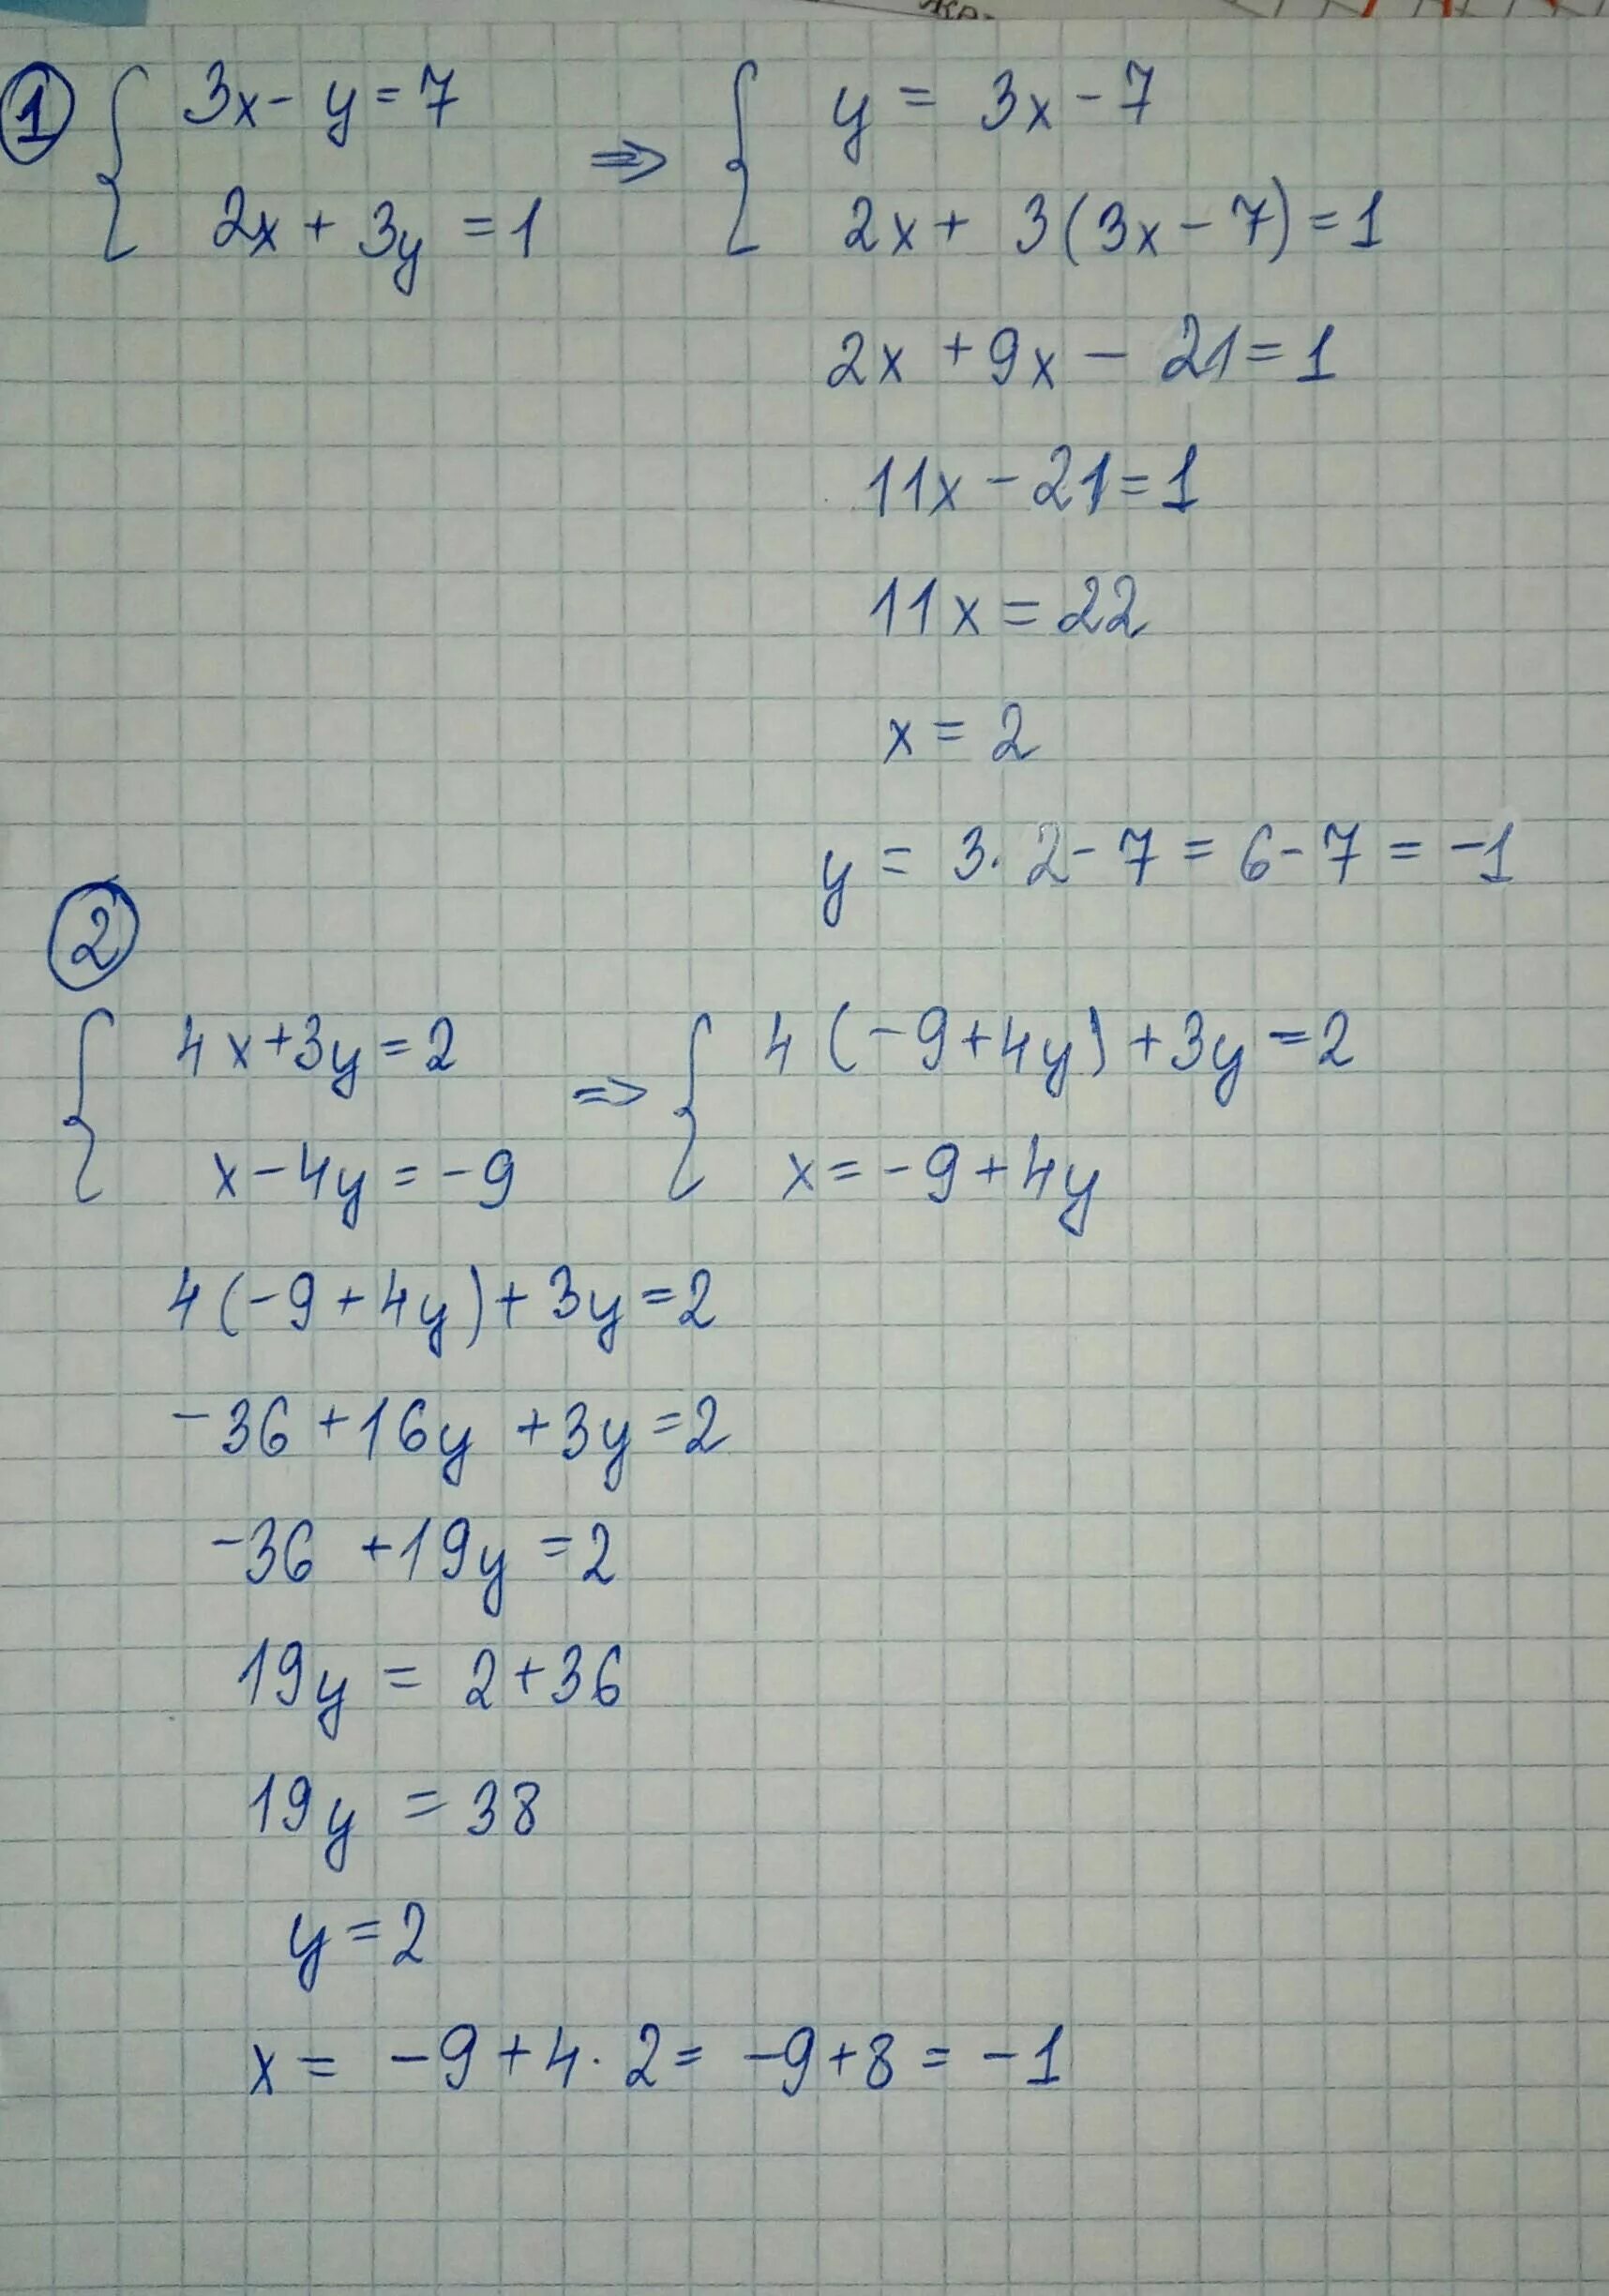 1 { 3x - y = 7 ⇒ { y = 3x - 7
2x + 3y = 1 2x + 3(3x - 7) = 1
2x + 9x - 21 = 1
11x - 21 = 1
11x = 22
x = 2
y = 3 · 2 - 7 = 6 - 7 = -1
2
{ 4x + 3y = 2 ⇒ { 4(-9 + 4y) + 3y = 2
x - 4y = -9 x = -9 + 4y
4(-9 + 4y) + 3y = 2
-36 + 16y + 3y = 2
-36 + 19y = 2
19y = 2 + 36
19y = 38
y = 2
x = -9 + 4 · 2 = -9 + 8 = -1